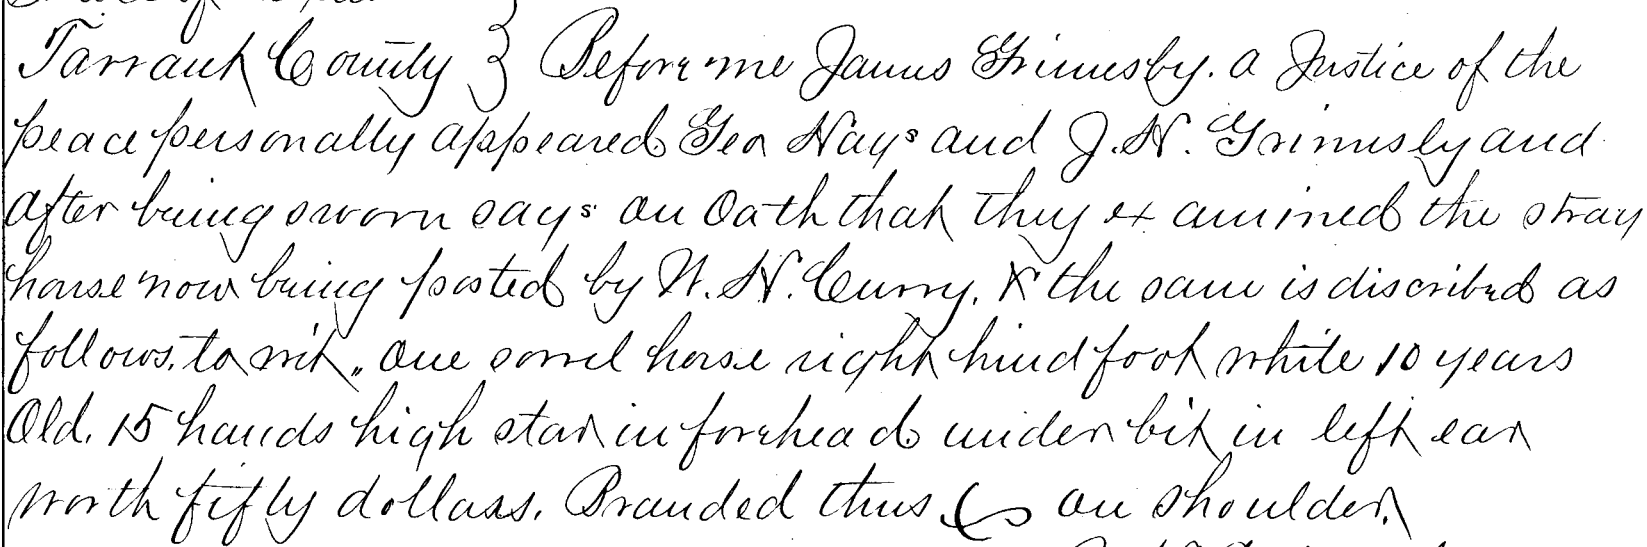 Tarrant County } Before me James Grimesby. a Justice of the
peace personally appeared Geo Hays and J. H. Grimsly and
after being sworn says on Oath that they examined the stray
horse now being posted by W. H. Curry. & the same is discribed as
follows. to wit. One sorrel horse right hind foot white 10 years
Old. 15 hands high star in forehead under bit in left ear
worth fifty dollars. Branded thus on shoulder.